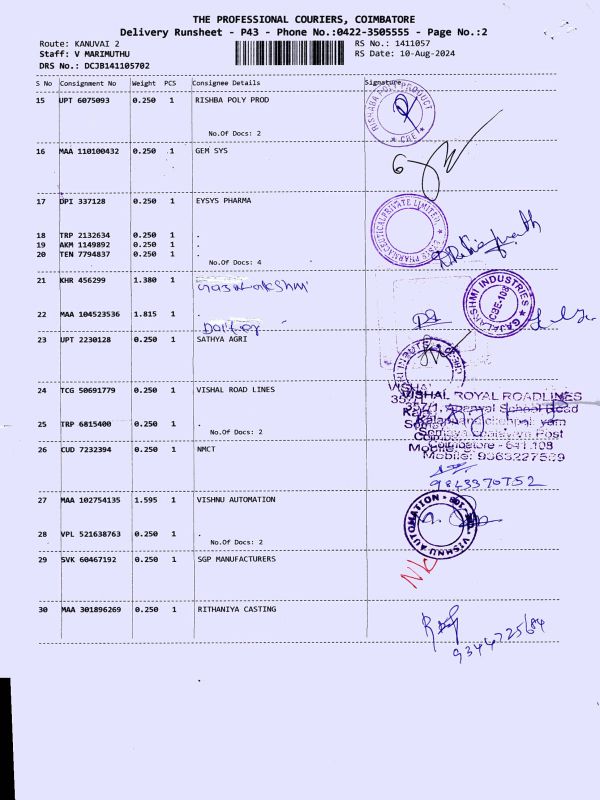 THE PROFESSIONAL COURIERS, COIMBATORE
Delivery Runsheet - P43 - Phone No.:0422-3505555 - Page No.:2
Route: KANUVAI 2 RS No.: 1411057
Staff: V MARIMUTHU RS Date: 10-Aug-2024
DRS No.: DCJB141105702
S No Consignment No Weight PCS Consignee Details Signature
15 UPT 6075093 0.250 1 RISHBA POLY PROD
RISHABA POLY PRODUCT
CBE
No.Of Docs: 2
16 MAA 110100432 0.250 1 GEM SYS
17 DPI 337128 0.250 1 EYSYS PHARMA
EYSYS PHARMACEUTICAL PRIVATE LIMITED
18 TRP 2132634 0.250 1 .
19 AKM 1149892 0.250 1 .
20 TEN 7794837 0.250 1 .
No.Of Docs: 4
21 KHR 456299 1.380 1
GAJALAKSHMI INDUSTRIES
CBE-108
22 MAA 104523536 1.815 1 .
23 UPT 2230128 0.250 1 SATHYA AGRI
24 TCG 50691779 0.250 1 VISHAL ROAD LINES
VISHAL ROYAL ROADLINES
School Road
25 TRP 6815400 0.250 1 .
No.Of Docs: 2
Post
Coimbatore - 641 108
Mobile: 9363227539
26 CUD 7232394 0.250 1 NMCT
27 MAA 102754135 1.595 1 VISHNU AUTOMATION
VISHNU AUTOMATION
28 VPL 521638763 0.250 1 .
No.Of Docs: 2
29 SVK 60467192 0.250 1 SGP MANUFACTURERS
30 MAA 301896269 0.250 1 RITHANIYA CASTING
9344725684